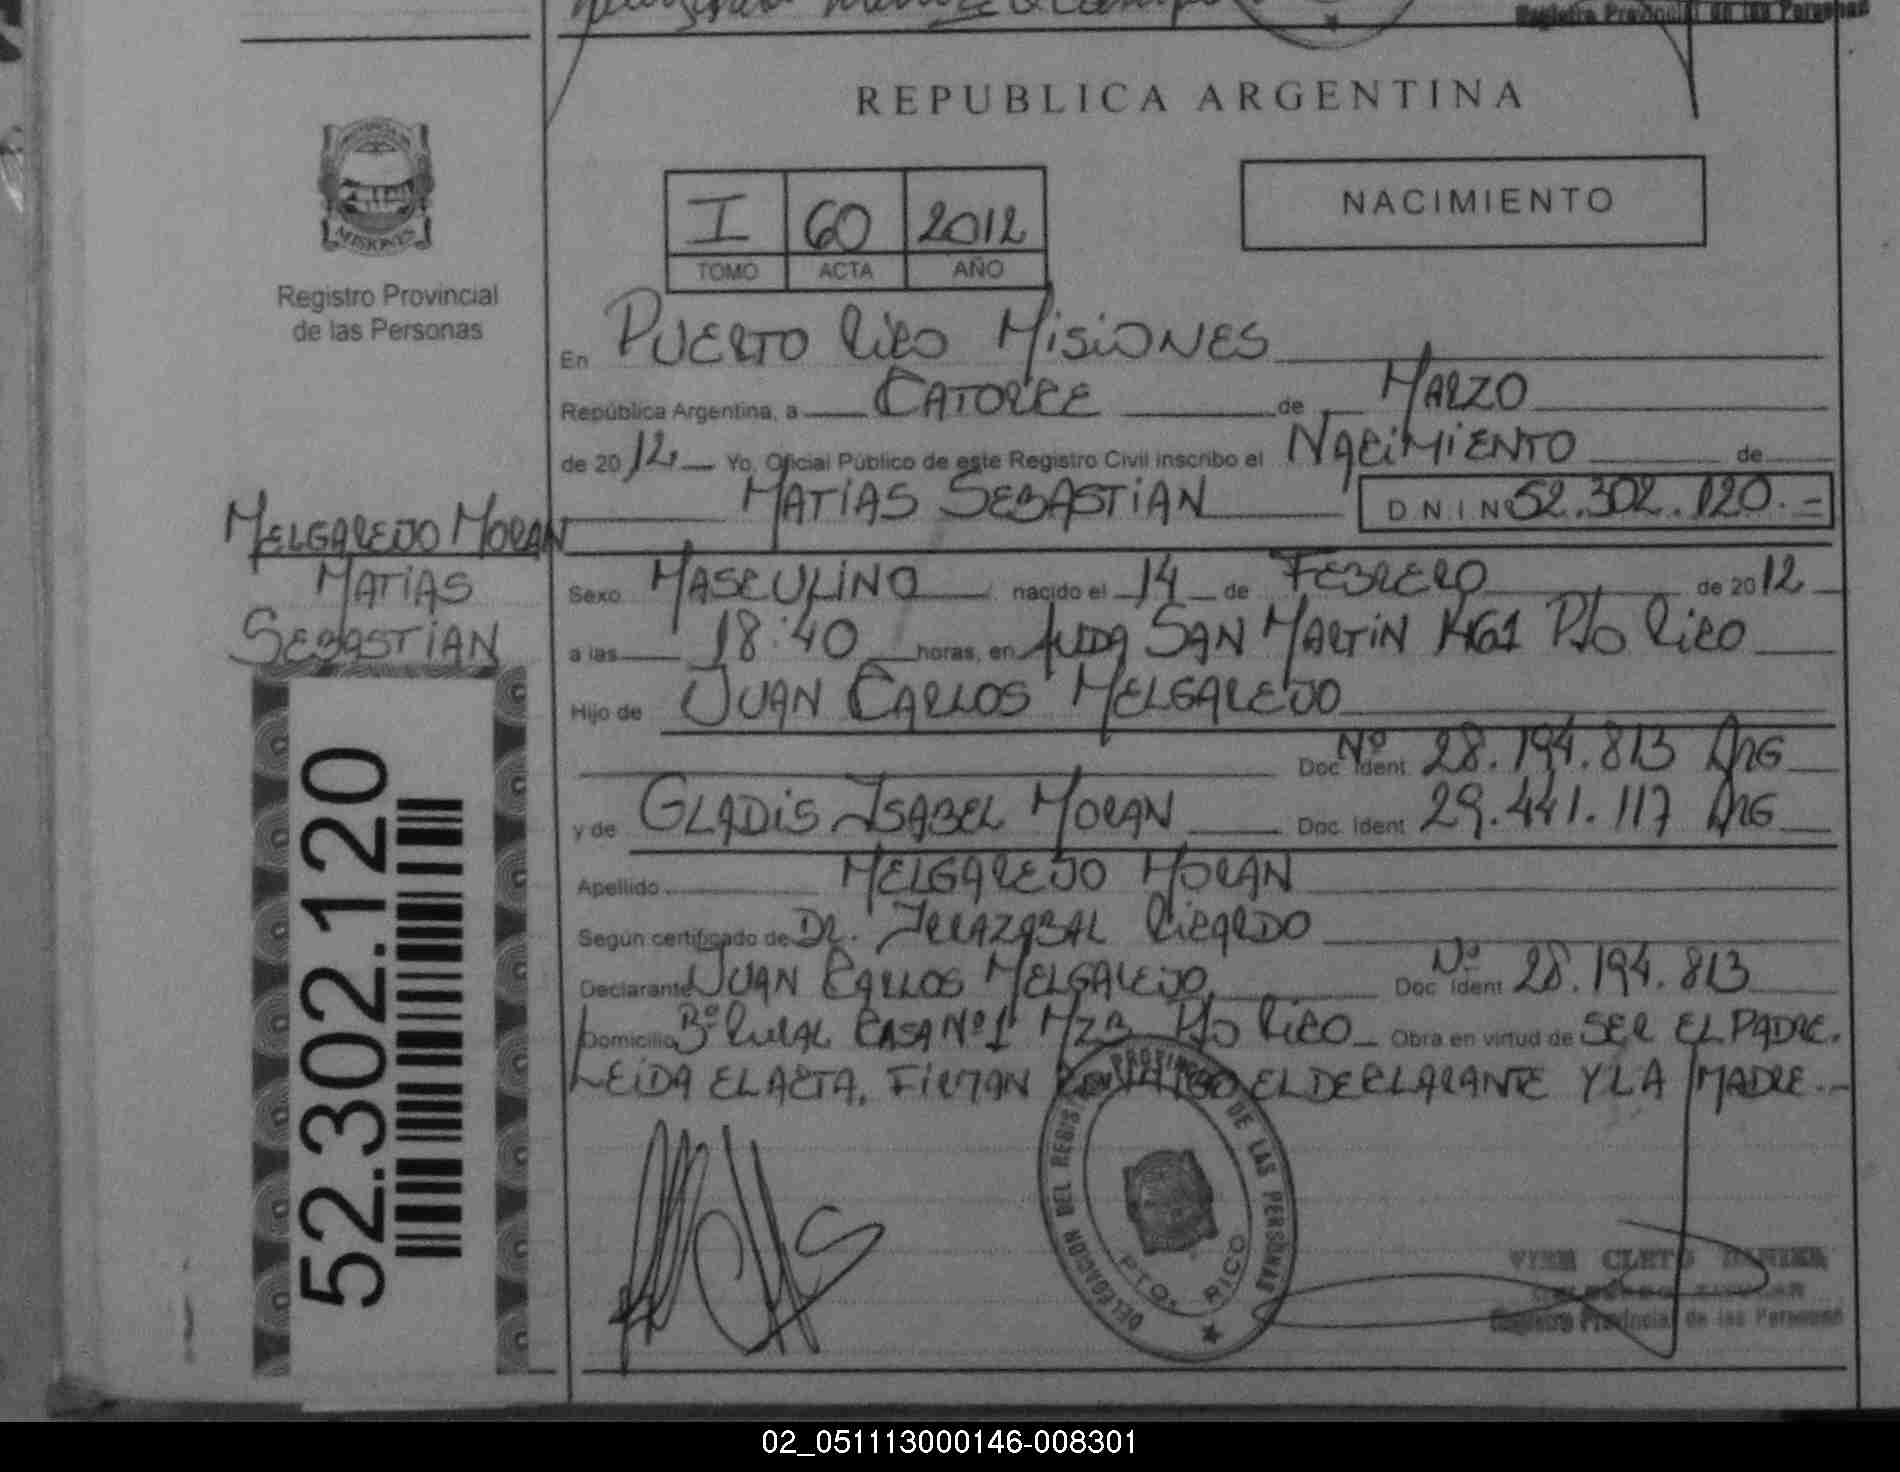 Registro Provincial de las Personas
REPUBLICA ARGENTINA
NACIMIENTO
I 60 2012
TOMO ACTA AÑO
MISIONES
Registro Provincial
de las Personas
En PUERTO RICO MISIONES
República Argentina, a CATORCE de MARZO
de 2012 Yo, Oficial Público de este Registro Civil inscribo el NACIMIENTO de
MATIAS SEBASTIAN D N I Nº 52.302.120.-
MELGAREJO MORAN
MATIAS
SEBASTIAN
Sexo MASCULINO nacido el 14 de FEBRERO de 2012
a las 18:40 horas, en AVDA SAN MARTIN 1461 Pto RICO
Hijo de JUAN CARLOS MELGAREJO
Doc. Ident. Nº 28.194.813 ARG
y de GLADIS ISABEL MORAN Doc. Ident. 29.441.117 ARG
Apellido MELGAREJO MORAN
Según certificado de DR. IRRAZABAL RICARDO
Declarante JUAN CARLOS MELGAREJO Doc. Ident. Nº 28.194.813
Domicilio Bº RURAL CASA Nº 1 MZ B Pto RICO Obra en virtud de SER EL PADRE.
LEIDA EL ACTA, FIRMAN EL DECLARANTE Y LA MADRE.-
52.302.120
DELEGACION DEL REGISTRO PROVINCIAL DE LAS PERSONAS
PTO. RICO
CLETO
Registro Provincial de las Personas
02_051113000146-008301